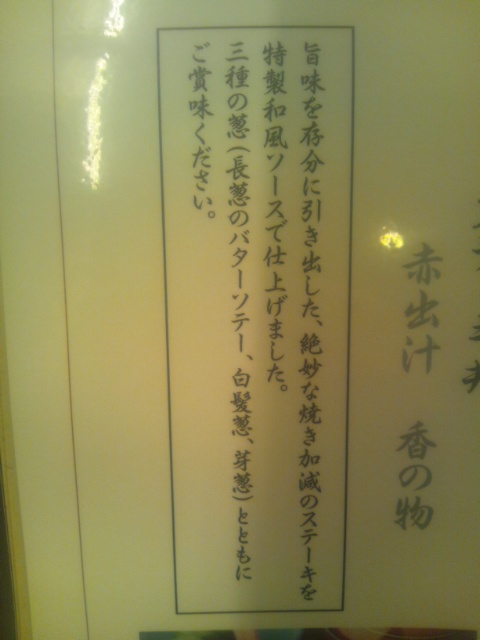 赤出汁 香の物
旨味を存分に引き出した、絶妙な焼き加減のステーキを
特製和風ソースで仕上げました。
三種の葱(長葱のバターソテー、白髪葱、芽葱)とともに
ご賞味ください。